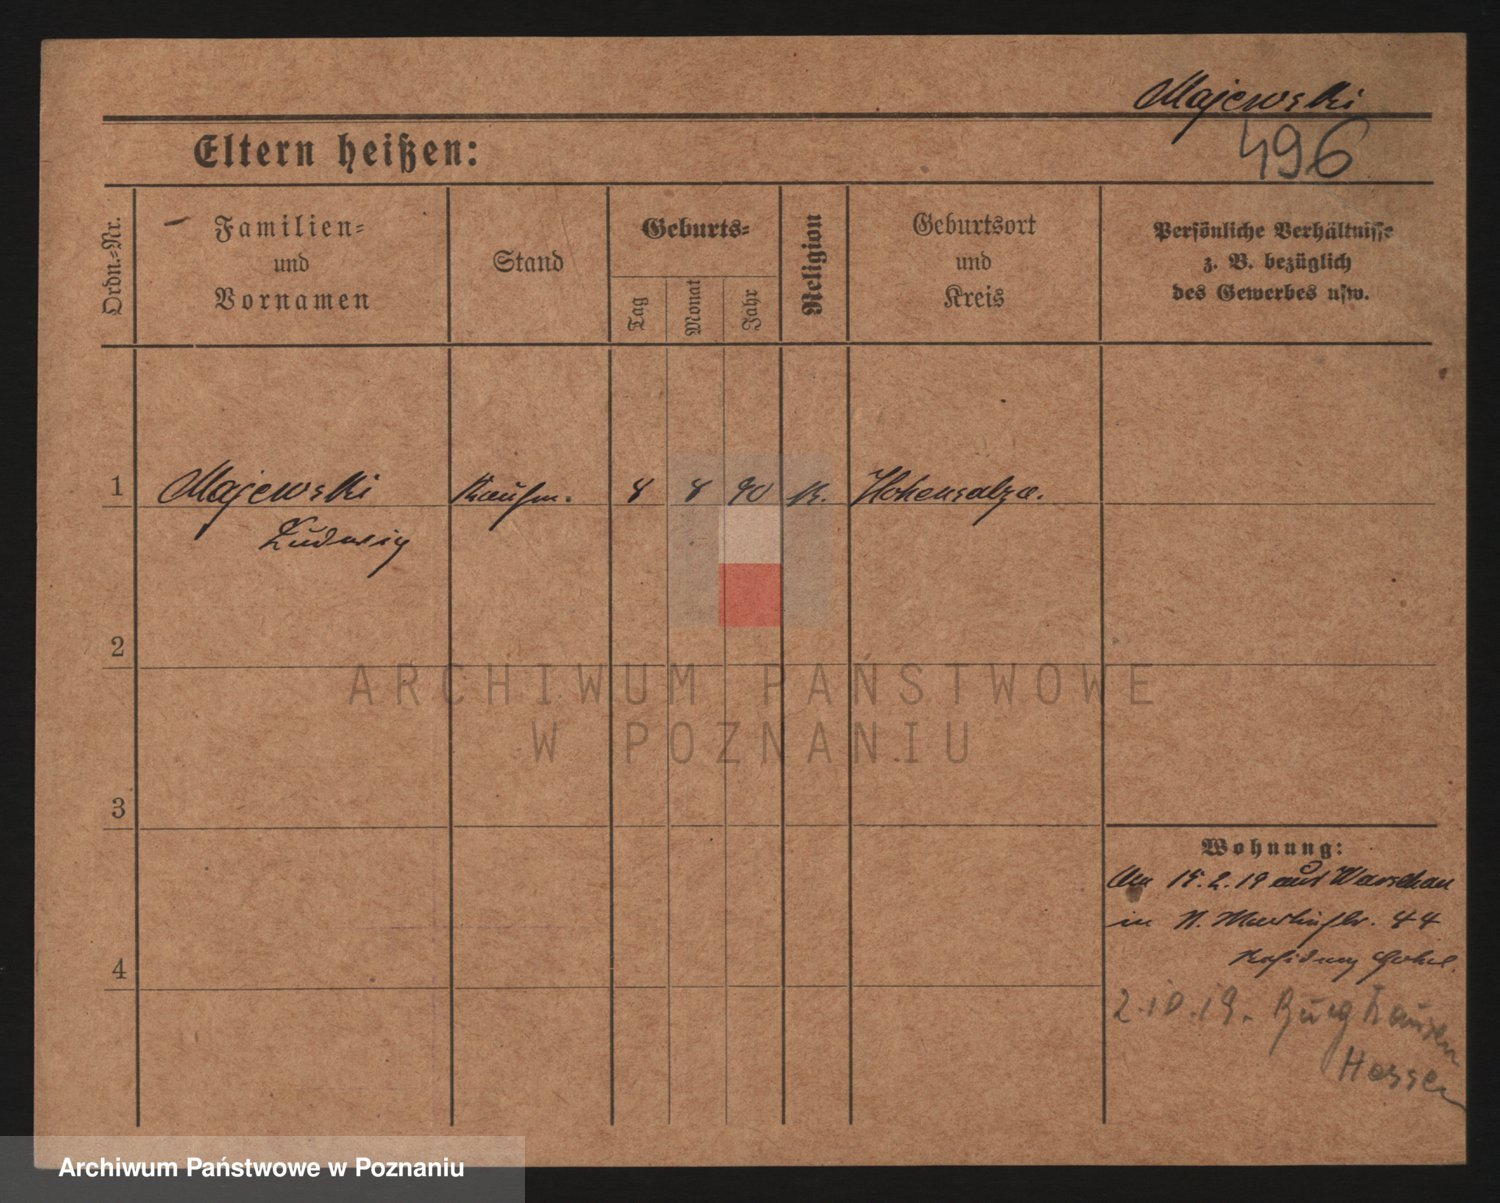 Majewski
496
Eltern heißen:
Ordn.-Nr.
Familien-
und
Vornamen
Stand
Geburts-
Tag
Monat
Jahr
Religion
Geburtsort
und
Kreis
Persönliche Verhältnisse
z. B. bezüglich
des Gewerbes usw.
1 Majewski Kaufm. 8 8 90 K. Hohensalza.
Ludwig
2
3
4
Wohnung:
Am 15.2.19 aus Warschau
in St. Martinstr. 44
2.10.19. Burghausen
Hessen
ARCHIWUM PAŃSTWOWE
W POZNANIU
Archiwum Państwowe w Poznaniu